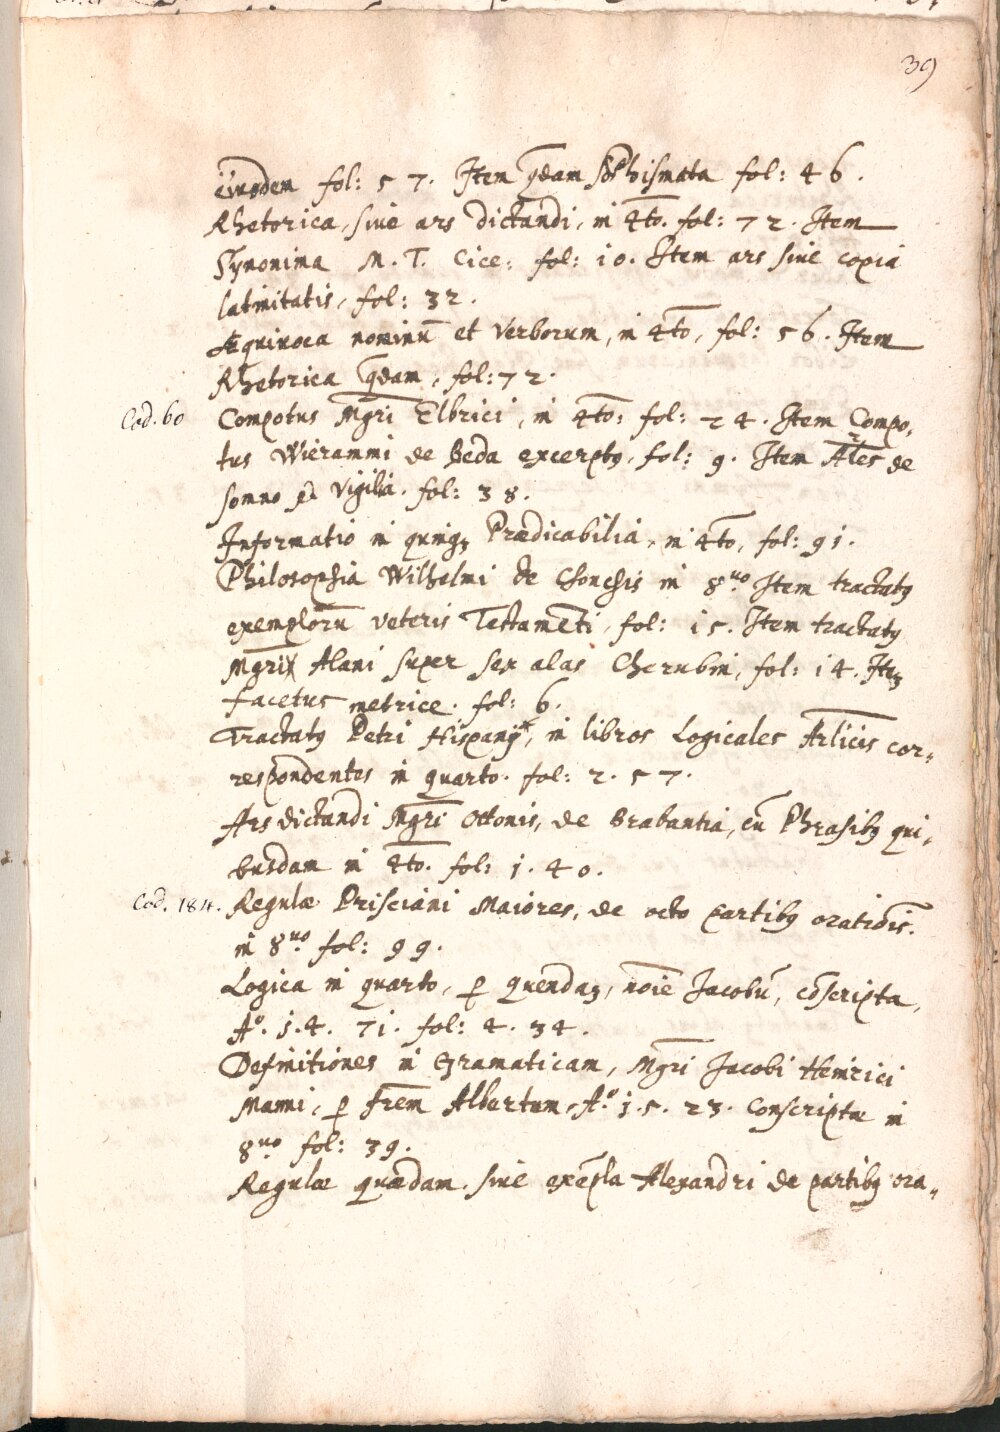 39
eiusdem fol: 57. Item qdam Sophismata fol: 46.
Rhetorica, siue ars dictandi, in 4to. fol: 72. Item
Synonima M. T. Cice: fol: 10. Item ars siue copia
latinitatis, fol: 32.
Æquiuoca nominū et Verborum, in 4to, fol: 56. Item
Rhetorica qdam, fol: 72.
Cod. 60 Compotus Mgri Elbrici, in 4to: fol: 24. Item Compo,
tus Wierammi de Beda excerptꝰ. fol: 9. Item Ales de
somno et Vigilia. fol: 38.
Informatio in quinqꝫ Prædicabilia, in 4to, fol: 91.
Philosophia Wilhelmi de Chonchis in 8uo Item tractatꝰ
exemplorū veteris Testamēti, fol: 15. Item tractatꝰ
Mgri Alani super sex alas Cherubin, fol: 14. Iteꝫ
facetus metrice. fol: 6.
Tractatꝰ Petri Hispanij, in libros Logicales Arlicis cor„
respondentes in quarto. fol: 2. 57.
Ars dictandi Mgri Ottonis, de Brabantia, cū Phrasibꝰ qui,
busdam in 4to. fol: 1. 40.
Cod. 184. Regulæ Prisciani Maiores, de octo partibꝰ orationis.
in 8uo fol: 99.
Logica in quarto, ꝑ quendaꝫ, noie Jacobū, cōscripta,
Aº. 1. 4. 71. fol: 4. 34.
Definitiones in Gramaticam, Mgri Jacobi Heinrici
Manni, ꝑ frem Albertum, Aº. 1. 5. 23. Conscriptæ in
8uo fol: 39.
Regulæ quædam. siue exēpla Alexandri de partibꝰ ora„